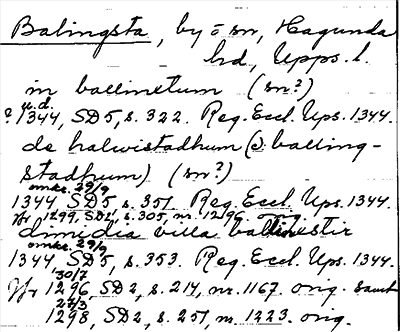 Balingsta, by o sn, Hagunda
hd, Upps. l.
in ballinetum (sn?)
u.d.
? 1344, SD 5, s. 322. Reg. Eccl. Ups. 1344.
de halwistadhum (o: balling-
stadhum) (sn?)
omkr. 29/9
1344, SD 5, s. 351. Reg. Eccl. Ups. 1344.
Jfr 1299, SD2, s. 305, nr. 1296. orig.
dimidia villa ballinestir
omkr. 29/9
1344, SD 5, s. 353. Reg. Eccl. Ups. 1344.
30/7
Jfr 1296, SD 2, s. 214, nr. 1167. orig. samt
27/3
1298, SD 2, s. 251, nr. 1223. orig.